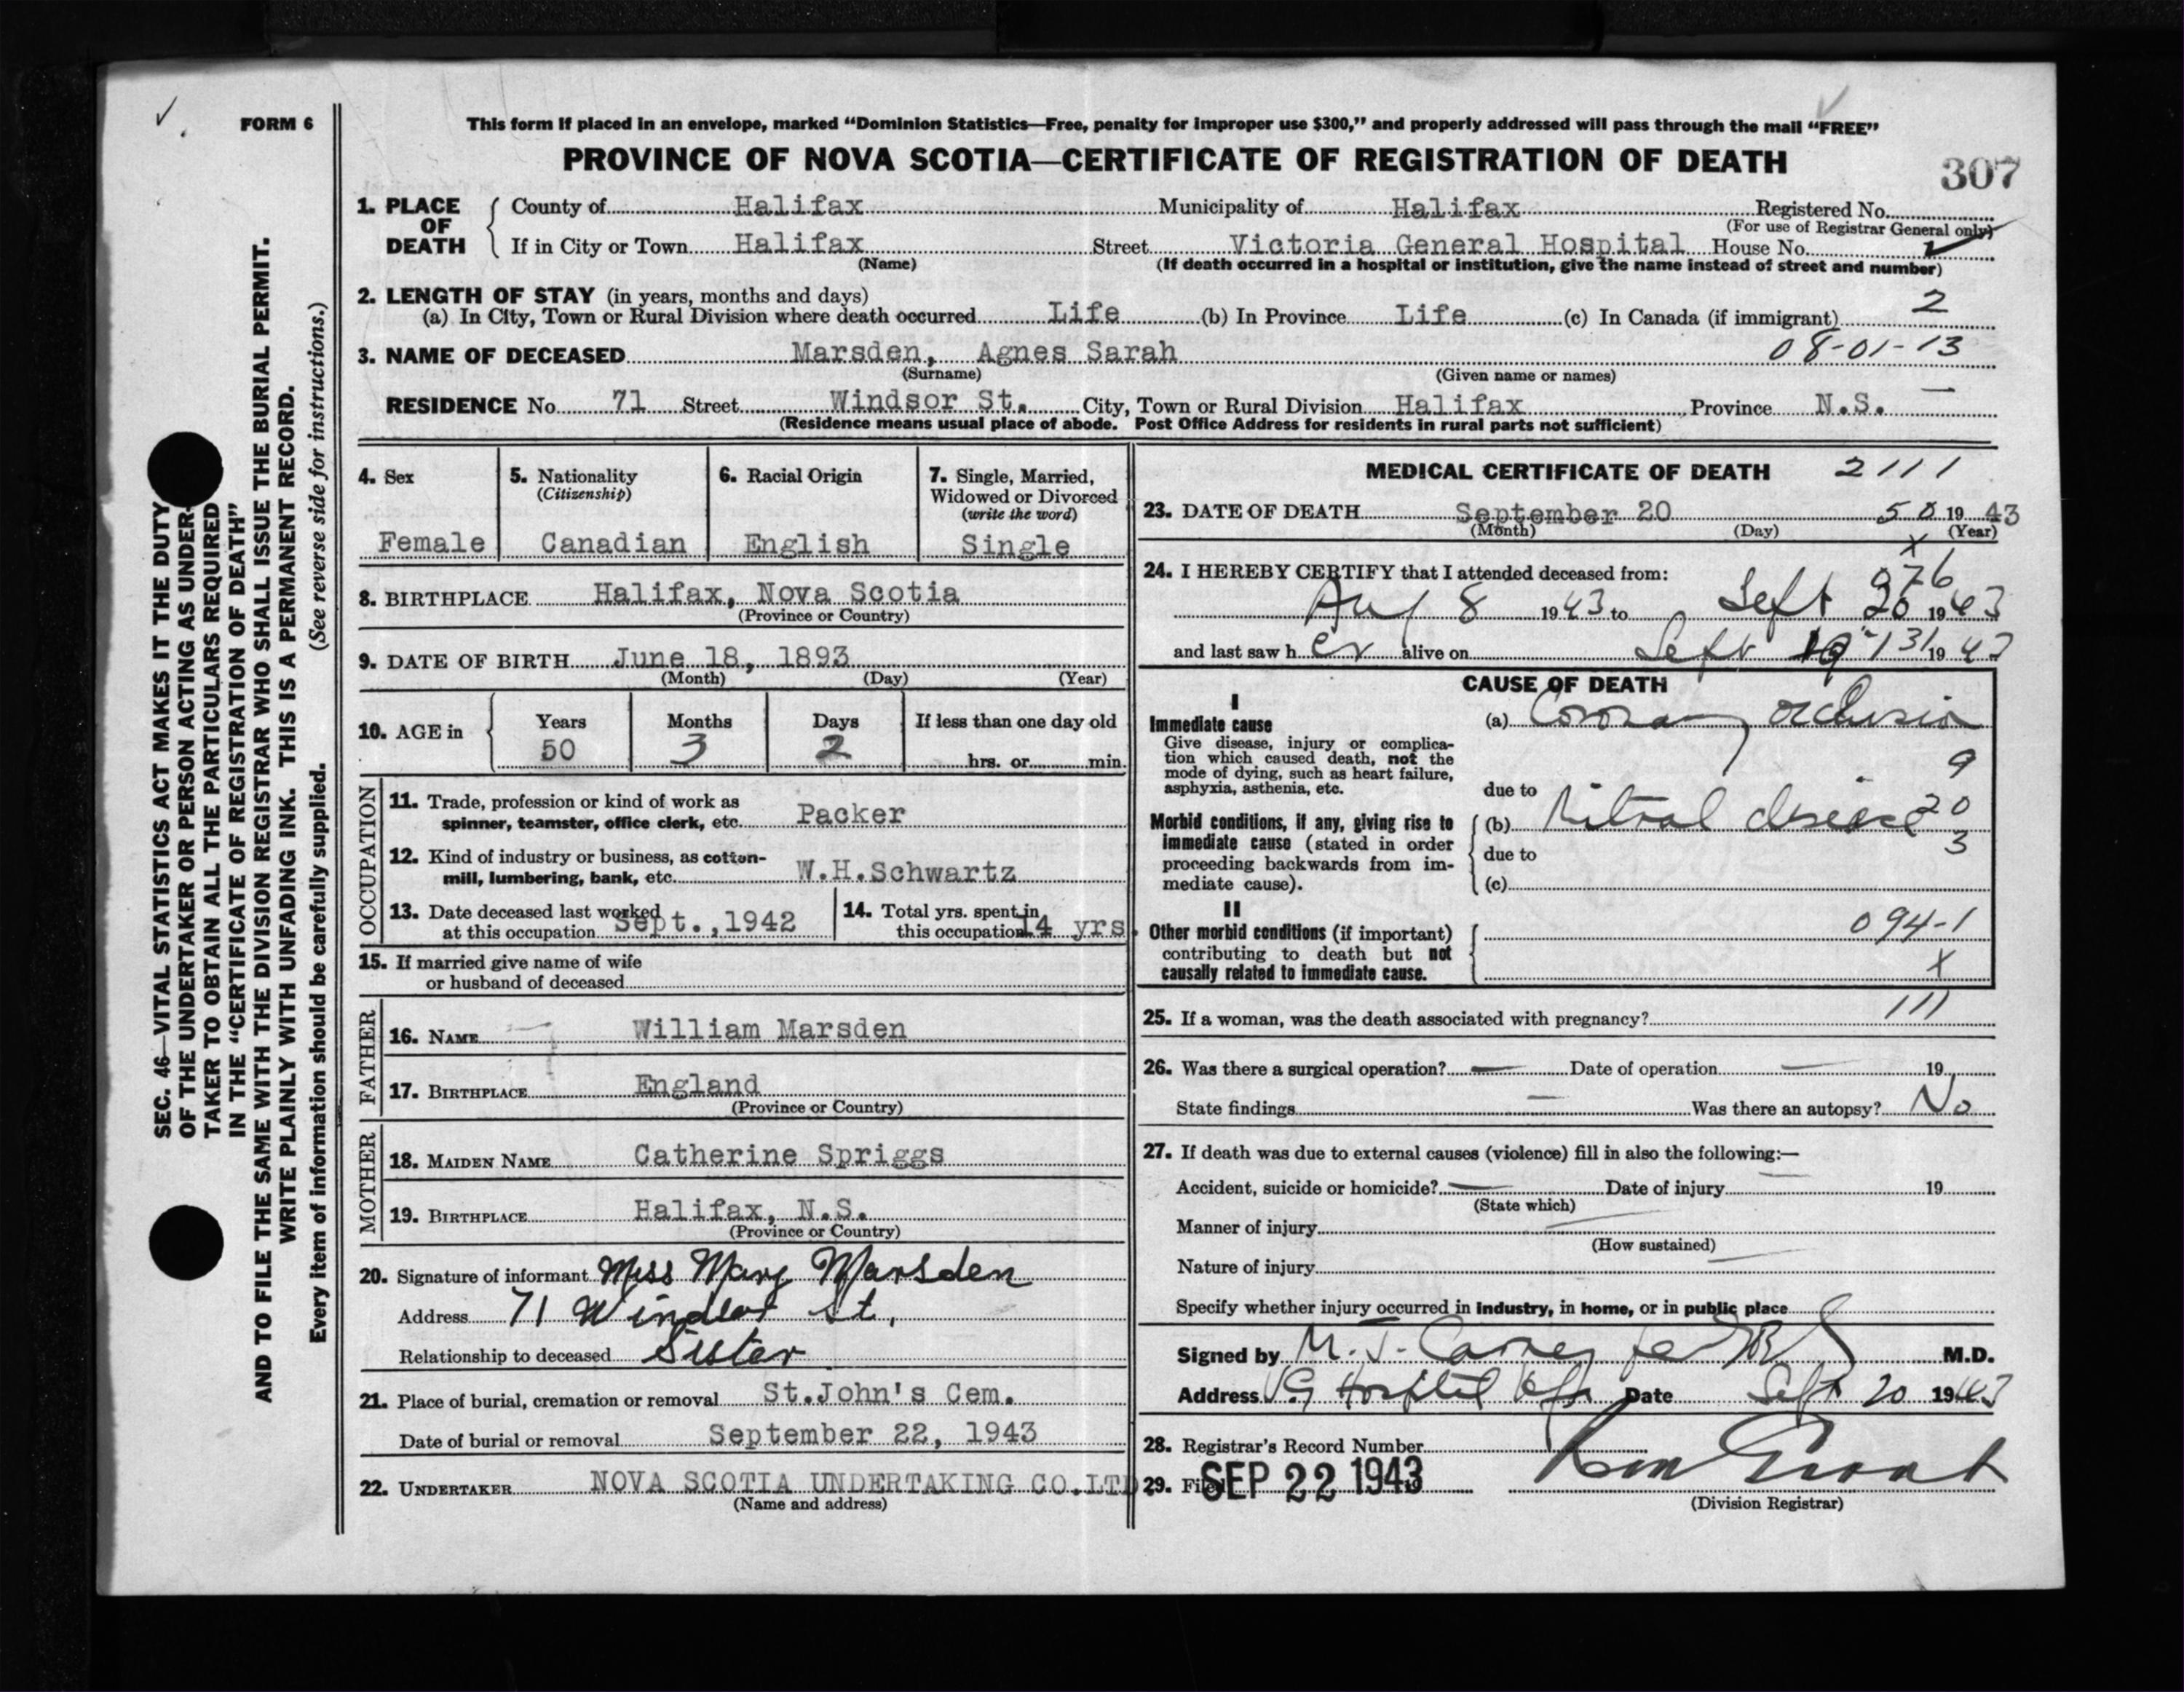 FORM 6
This form if placed in an envelope, marked “Dominion Statistics—Free, penalty for improper use $300,” and properly addressed will pass through the mail “FREE”
PROVINCE OF NOVA SCOTIA—CERTIFICATE OF REGISTRATION OF DEATH
307
1. PLACE OF DEATH
County of Halifax Municipality of Halifax Registered No.
(For use of Registrar General only)
If in City or Town Halifax Street Victoria General Hospital House No.
(Name) (If death occurred in a hospital or institution, give the name instead of street and number)
2. LENGTH OF STAY (in years, months and days)
(a) In City, Town or Rural Division where death occurred Life (b) In Province Life (c) In Canada (if immigrant) 2
3. NAME OF DECEASED Marsden, Agnes Sarah 08-01-13
(Surname) (Given name or names)
RESIDENCE No. 71 Street Windsor St. City, Town or Rural Division Halifax, Province N.S.
(Residence means usual place of abode. Post Office Address for residents in rural parts not sufficient)
4. Sex
Female
5. Nationality
(Citizenship)
Canadian
6. Racial Origin
English
7. Single, Married,
Widowed or Divorced
(write the word)
Single
8. BIRTHPLACE Halifax, Nova Scotia
(Province or Country)
9. DATE OF BIRTH June 18, 1893
(Month) (Day) (Year)
10. AGE in
Years Months Days If less than one day old
50 3 2 hrs. or min.
OCCUPATION
11. Trade, profession or kind of work as
spinner, teamster, office clerk, etc. Packer
12. Kind of industry or business, as cotton-
mill, lumbering, bank, etc. W.H.Schwartz
13. Date deceased last worked
at this occupation Sept.,1942
14. Total yrs. spent in
this occupation 14 yrs.
15. If married give name of wife
or husband of deceased
FATHER
16. NAME William Marsden
17. BIRTHPLACE England
(Province or Country)
MOTHER
18. MAIDEN NAME Catherine Spriggs
19. BIRTHPLACE Halifax, N.S.
(Province or Country)
20. Signature of informant Miss Mary Marsden
Address 71 Windsor St,
Relationship to deceased Sister
21. Place of burial, cremation or removal St.John's Cem.
Date of burial or removal September 22, 1943
22. UNDERTAKER NOVA SCOTIA UNDERTAKING CO.LTD.
(Name and address)
MEDICAL CERTIFICATE OF DEATH 2111
23. DATE OF DEATH September 20 50 1943
(Month) (Day) (Year)
X
24. I HEREBY CERTIFY that I attended deceased from: 976
Aug 8 1943 to Sept 20 1943
and last saw h er alive on Sept 19 131 1943
CAUSE OF DEATH
I
Immediate cause
Give disease, injury or complica-
tion which caused death, not the
mode of dying, such as heart failure,
asphyxia, asthenia, etc.
(a) Coronary occlusion
9
due to
Morbid conditions, if any, giving rise to
immediate cause (stated in order
proceeding backwards from im-
mediate cause).
(b) Mitral disease 20
due to 3
(c)
II
Other morbid conditions (if important)
contributing to death but not
causally related to immediate cause.
094-1
X
25. If a woman, was the death associated with pregnancy? 111
26. Was there a surgical operation? — Date of operation — 19
State findings — Was there an autopsy? No
27. If death was due to external causes (violence) fill in also the following:—
Accident, suicide or homicide? — Date of injury 19
(State which)
Manner of injury
(How sustained)
Nature of injury
Specify whether injury occurred in industry, in home, or in public place
Signed by M. J. Carney M.D.
Address VG Hospital Hfx Date Sept 20 1943
28. Registrar's Record Number
29. Filed SEP 22 1943
(Division Registrar)
SEC. 46—VITAL STATISTICS ACT MAKES IT THE DUTY
OF THE UNDERTAKER OR PERSON ACTING AS UNDER-
TAKER TO OBTAIN ALL THE PARTICULARS REQUIRED
IN THE “CERTIFICATE OF REGISTRATION OF DEATH”
AND TO FILE THE SAME WITH THE DIVISION REGISTRAR WHO SHALL ISSUE THE BURIAL PERMIT.
WRITE PLAINLY WITH UNFADING INK. THIS IS A PERMANENT RECORD.
Every item of information should be carefully supplied. (See reverse side for instructions.)